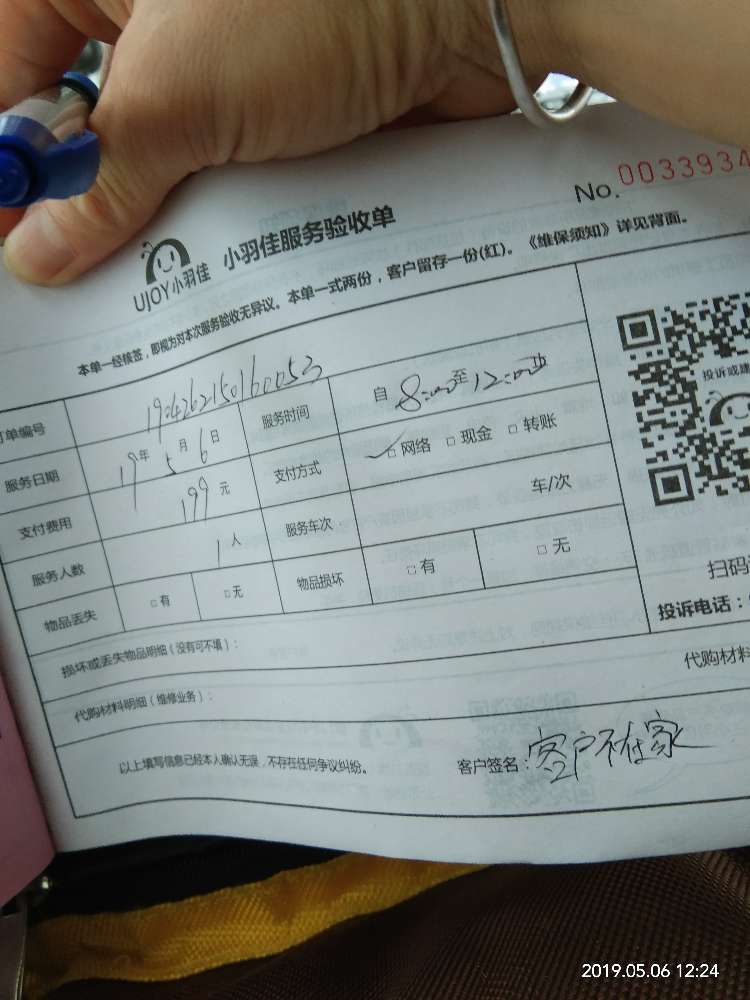 No. 0033934
UJOY小羽佳 小羽佳服务验收单
本单一经核签，即视为对本次服务验收无异议。本单一式两份，客户留存一份(红)。《维保须知》详见背面。
订单编号 1904262150160053 服务时间 自 8:00 至 12:00止
服务日期 19年 5月 6日 支付方式 ✓□网络 □现金 □转账
支付费用 199元 服务车次 车/次
服务人数 1人 物品损坏 □有 □无
物品丢失 □有 □无
投诉或建
扫码
投诉电话：
损坏或丢失物品明细（没有可不填）：
代购材料明细（维修业务）： 代购材料
以上填写信息已经本人确认无误，不存在任何争议纠纷。 客户签名：客户不在家
2019.05.06 12:24